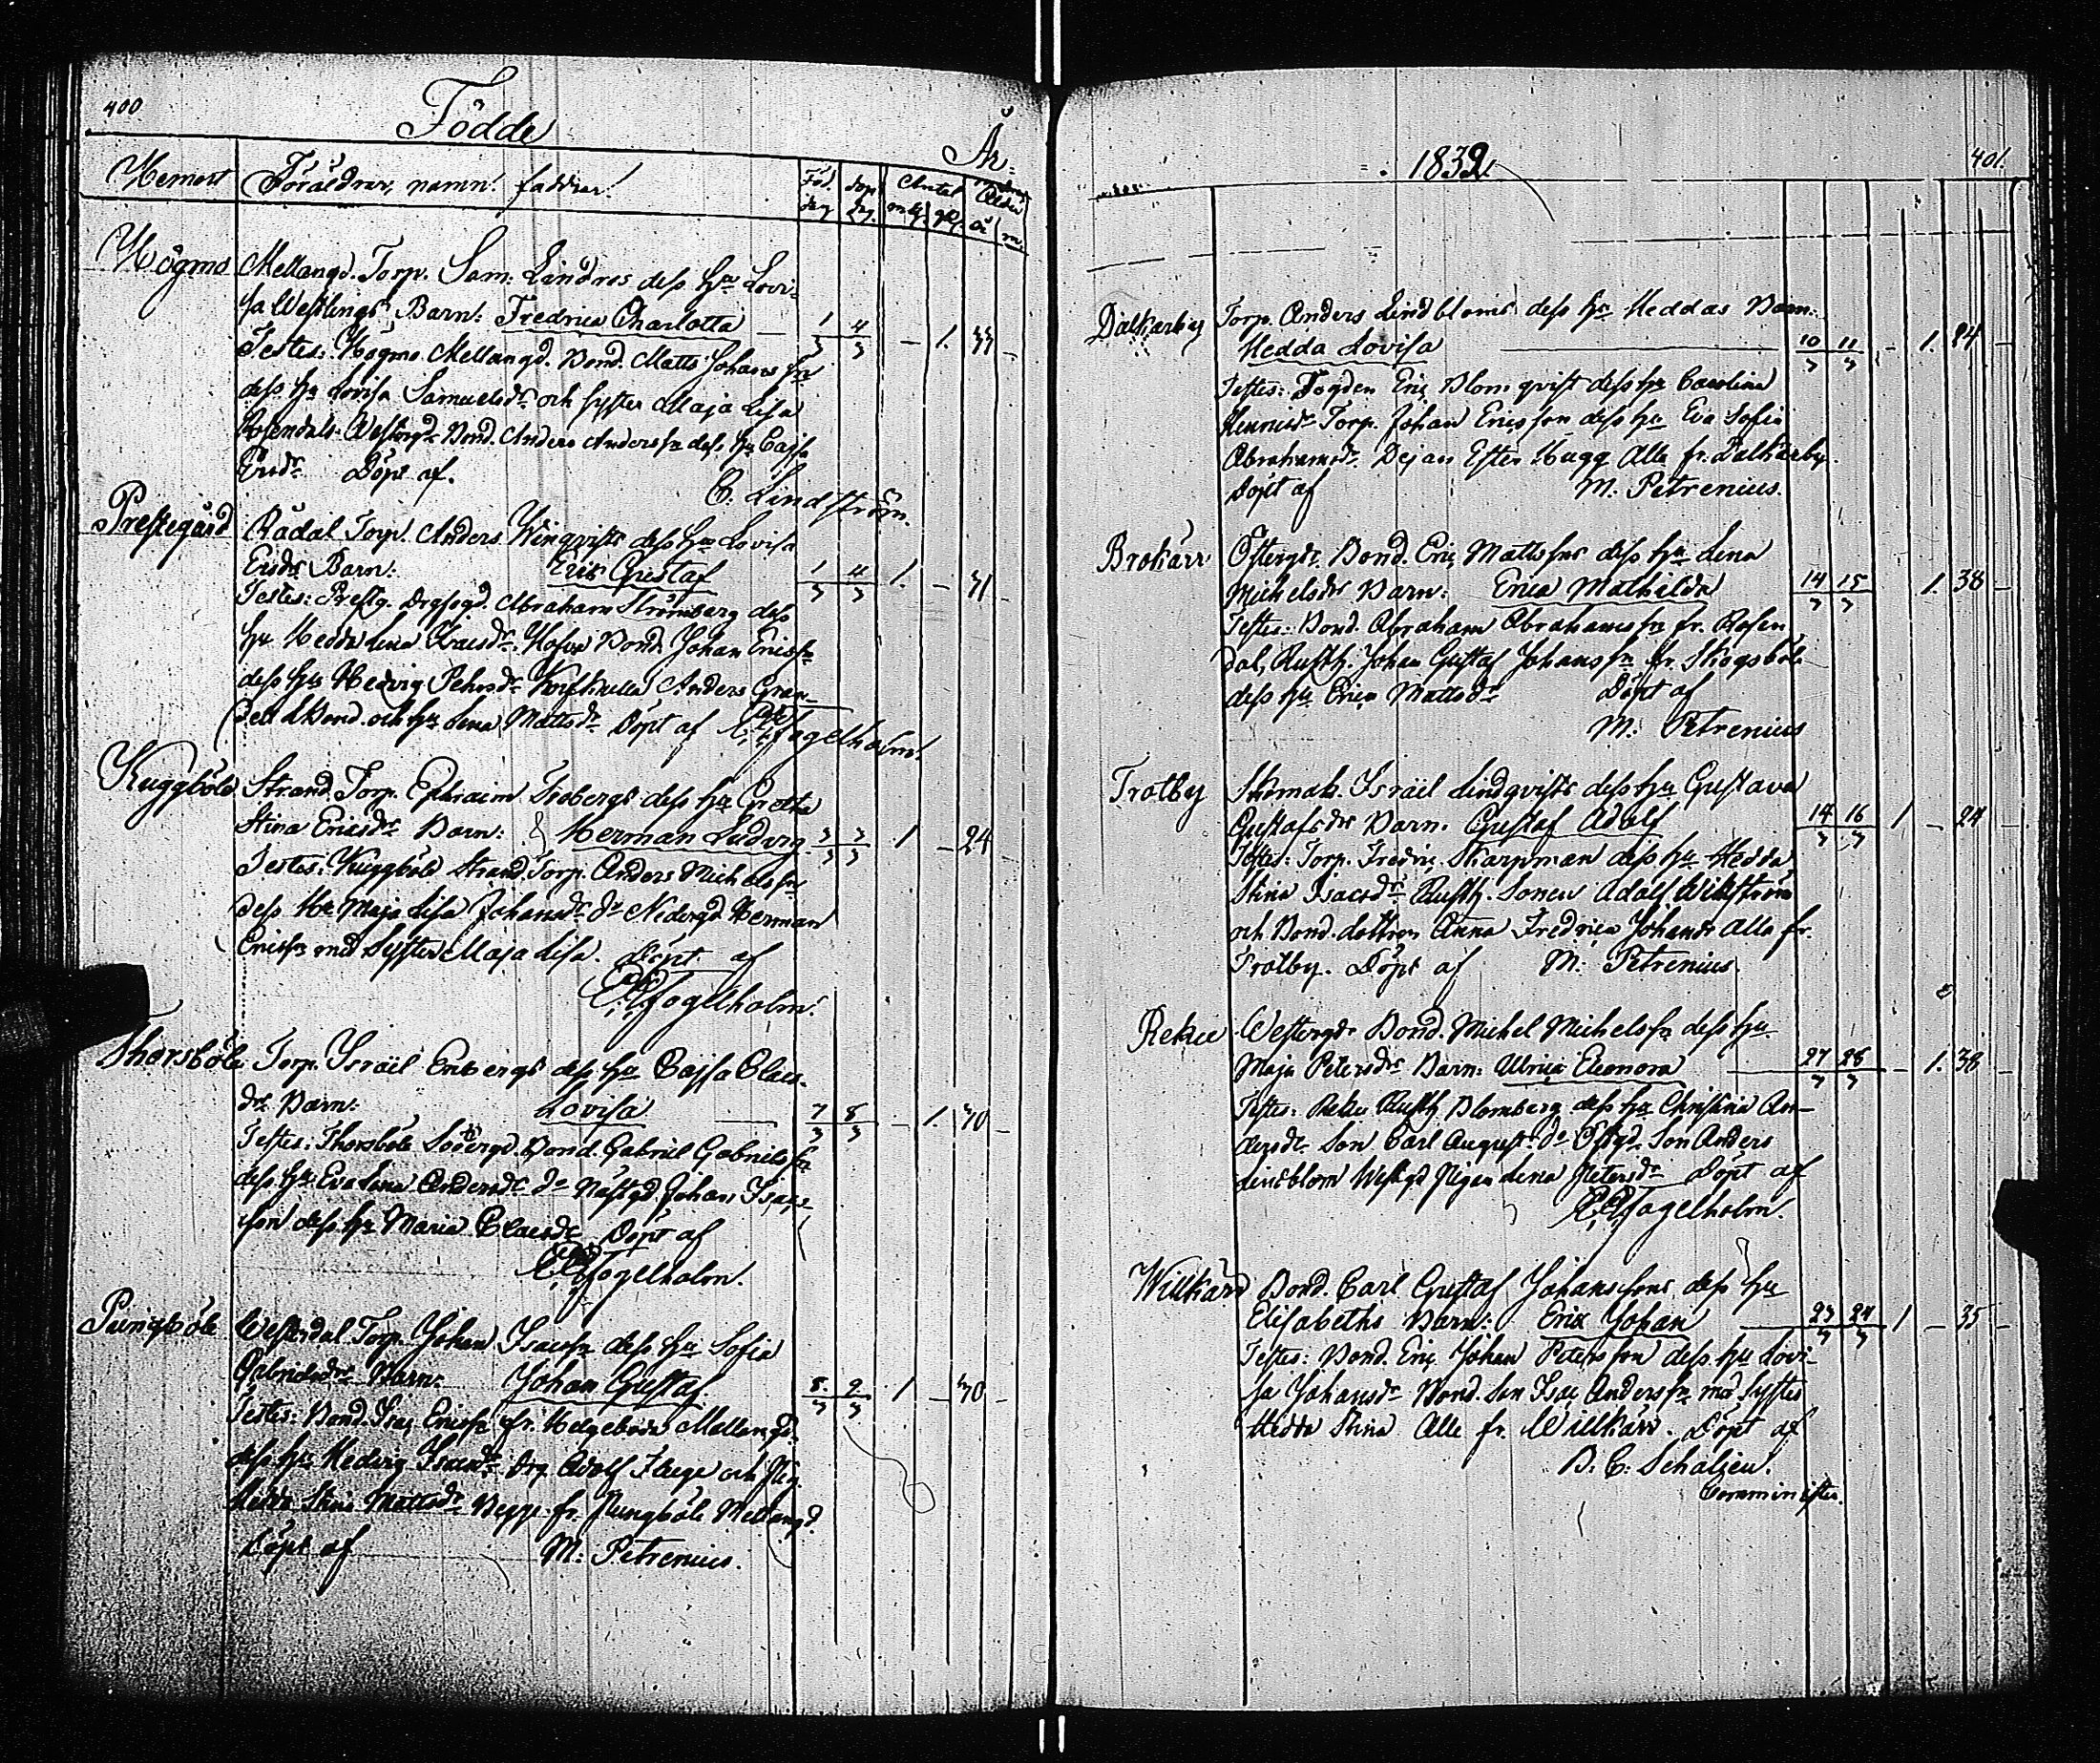 400
Födde
År
Hemort Föräldrar, namn. faddrar.
Föd. dag Dop dag. Antal mk. qk. Ålder år m.
Högmo Mellangd. Torp. Sam: Lindros dess hu Lovi-
sa Westlings Barn: Fredrica Charlotta 1/3 4/3 – 1. 33 –
Testes: Högmo Mellangd. Bond. Matts Johans sn
dess hu Lovisa Samuelsdr och syster Maja Lisa
Rosendals Westergd Bond. Anders Anderssn dess hu Cajsa
Ersdr Döpt af.
C. Lindström.
Prestegård Rådal Torp. Anders Winqvists dess hu Lovisa
Ersdrs Barn: Eric Gustaf 1/3 4/3 1. – 31 –
Testes: Prestg. Abraham Strömberg dess
hu Hedda Lena Bond. Johan Ericssn
dess hu Hedvig Pehrsdr Anders Gran-
Bond. och hu Lena Mattsdr Döpt af Fogelholm.
Kuggböle Strand. Torp. Ephraim Isobergs dess hu Gretha
Stina Ericsdrs Barn: Herman Ludvig 3/3 7/3 1 – 24
Testes: Kuggböle Strand. Torp. Anders Michelssn
dess Hu Maja Lisa Johansdr do Nedergd Herman
Ericssn med syster Maja Lisa. Döpt af
Fogelholm.
Thorsböle Torp. Israël Enbergs dess hu Cajsa Claes-
drs Barn: Lovisa 7/3 8/3 – 1. 30 –
Testes: Thorsböle Södergd. Bond. Gabriel Gabrielssn
dess hu Eva Lena Andersdr do Nästgd. Johan Isacs-
son dess hu Maria Claesdr Döpt af
Fogelholm.
Pungböle Westerdal Torp. Johan Isacssn dess hu Sofia
Gabrielsdrs Barn: Johan Gustaf. 8/3 9/3 1 – 30 –
Testes: Bond. Isac Ericssn fr. Helgeboda Mellangd.
dess hu Hedvig Isacsdr Drg Adolf och Pig.
Hedda Stina Mattsdr Begge fr. Pungböle Mellangd.
Döpt af M: Petrenius.
1832. 401.
Dalkarby Torp. Anders Lindbloms dess hu Heddas Barn:
Hedda Lovisa 10/3 11/3 – 1. 24 –
Testes: Fogden Eric Blomqvist dess hu Carolina
Henricsdr Torp. Johan Ericsson dess hu Eva Sofia
Abrahamsdr. Pejan Ester Hagg Alla fr. Dalkarby.
Döpt af M: Petrenius.
Brokärr Östergds. Bond. Eric Mattssns dess hu Lena
Michelsdrs Barn: Erica Mathilda 14/3 15/3 1. 38 –
Testes: Bond. Abraham Abrahamssn fr. Rosen
dal, Rusth. Johan Gustaf Johanssn fr. Skogsböle
dess hu Erica Mattsdr Döpt af
M: Petrenius
Trotby Skomak. Israël Lindqvists dess hu Gustava
Gustafsdrs Barn. Gustaf Adolf 14/3 16/3 1 – 24 –
Testes: Torp. Fredric Skarpman dess hu Hedda
Stina Isacsdr Rusth. Sonen Adolf Wikström
och Bond. dottren Anna Fredrica Johansdr Alla fr.
Trotby. Döpt af M: Petrenius.
Rekee Westergds Bond. Michel Michelssn dess hu
Maja Petersdrs Barn: Ulrica Eleonora 27/3 28/3 – 1. 38 –
Testes: Rekee Rusth Blomberg dess hu Christina An-
dersdr Son Carl August do Östgd. Son Anders
Lindblom Westgd Pigan Lena Petersdr Döpt af
Fogelholm.
Willkärr Bond. Carl Gustaf Johanssons dess hu
Elisabeths Barn: Eric Johan 23/3 24/3 1 – 35 –
Testes: Bond. Eric Johan Petersson dess hu Lovi-
sa Johansdr Bond. Son Isac Anderssn med syster
Hedda Stina Alle fr. Willkärr. Döpt af
B. C: Schalien.
Comminister.